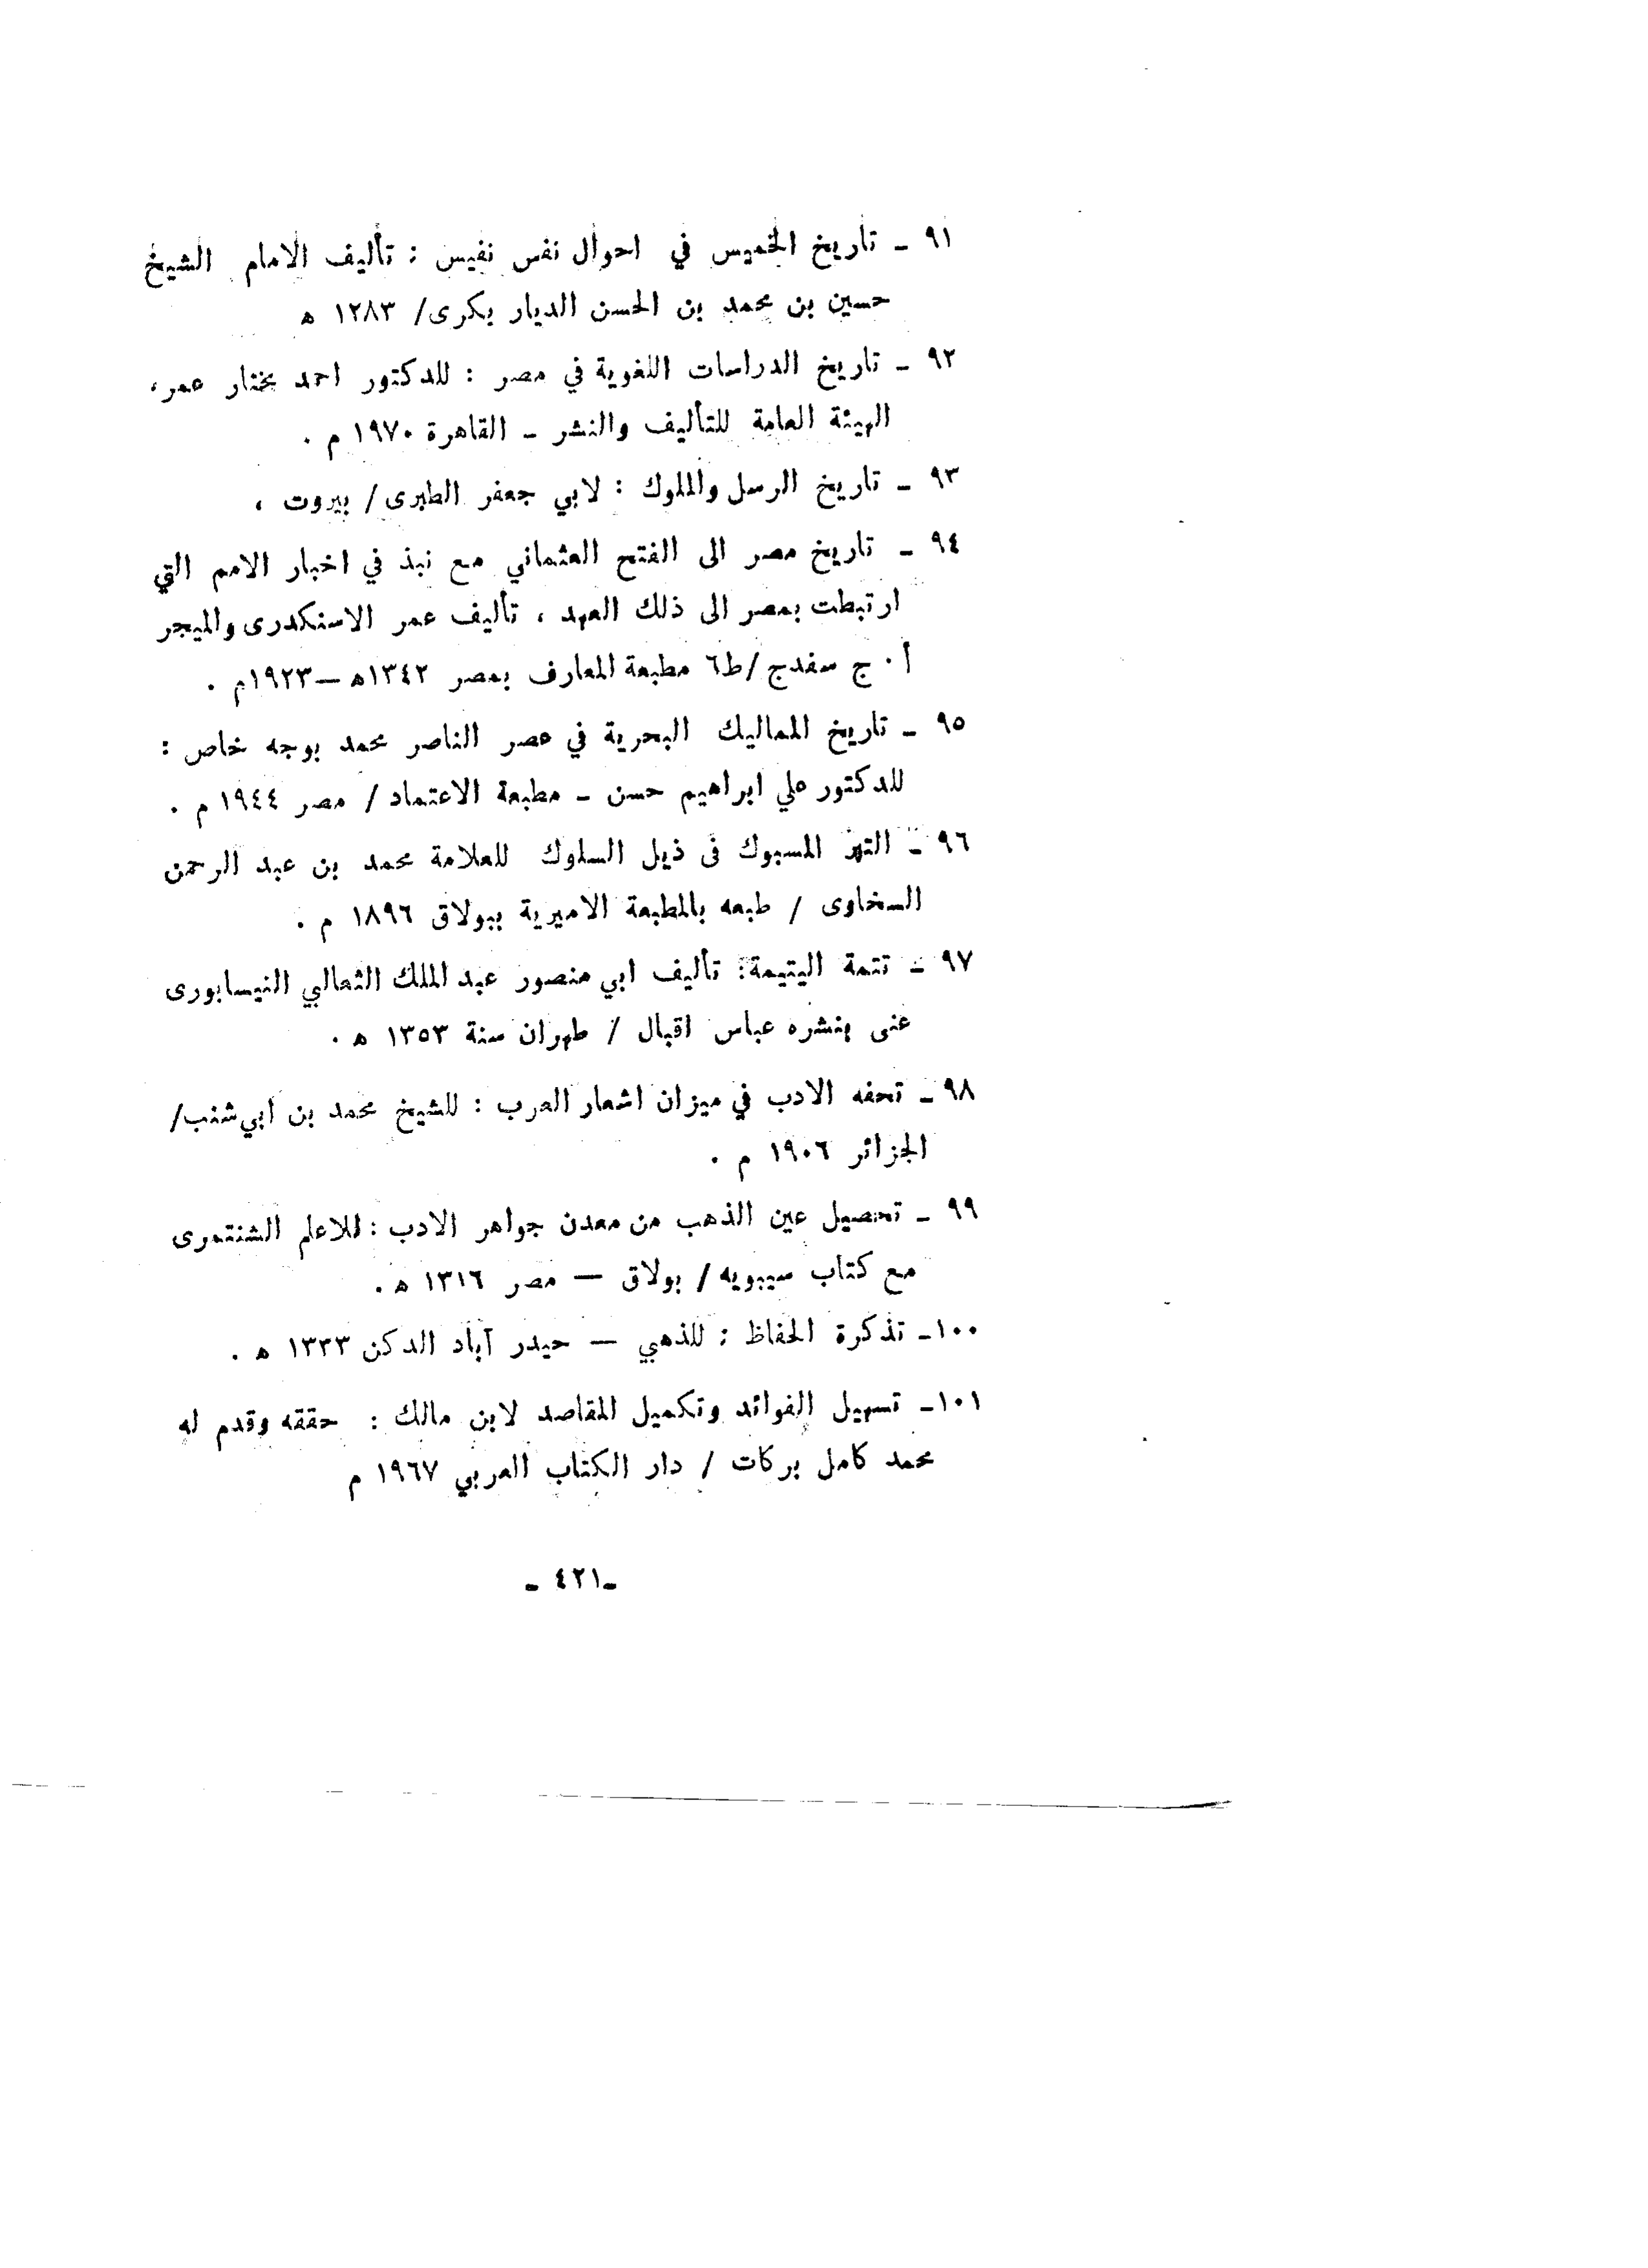 ٩١ ـ تاريخ الخميس في احوال نفس نفيس : تأليف الامام الشيخ
حسين بن محمد بن الحسن الديار بكرى/ ١٢٨٣ ه
٩٢ ـ تاريخ الدراسات اللغوية في مصر : للدكتور احمد مختار عمر،
الهيئة العامة للتأليف والنشر ـ القاهرة ١٩٧٠ م .
٩٣ ـ تاريخ الرسل والملوك : لابي جعفر الطبرى/ بيروت ،
٩٤ ـ تاريخ مصر الى الفتح العثماني مع نبذ في اخبار الامم التي
ارتبطت بمصر الى ذلك العهد ، تأليف عمر الاسنكدرى والميجر
أ . ج سفدج /ط٦ مطبعة المعارف بمصر ١٣٤٢ه —١٩٢٣م .
٩٥ ـ تاريخ المماليك البحرية في عصر الناصر محمد بوجه خاص :
للدكتور علي ابراهيم حسن ـ مطبعة الاعتماد / مصر ١٩٤٤ م .
٩٦ ـ المسبوك فى ذيل السلوك للعلامة محمد بن عبد الرحمن
السخاوى / طبعه بالمطبعة الاميرية ببولاق ١٨٩٦ م .
٩٧ ـ تتمة اليتيمة: تأليف ابي منصور عبد الملك الثعالبي النيسابورى
عنى بنشره عباس اقبال / طهران سنة ١٣٥٣ ه .
٩٨ ـ تحفه الادب في ميزان اشعار العرب : للشيخ محمد بن أبي شنب/
الجزائر ١٩٠٦ م .
٩٩ ـ تحصيل عين الذهب من معدن جواهر الادب : للاعلم الشنتمرى
مع كتاب سيبويه / بولاق — مصر ١٣١٦ ه .
١٠٠ـ تذكرة الحفاظ : للذهبي — حيدر آباد الدكن ١٣٣٣ ه .
١٠١ـ تسهيل الفوائد وتكميل المقاصد لابن مالك : حققه وقدم له
محمد كامل بركات / دار الكتاب العربي ١٩٦٧ م
ـ٤٢١ ـ